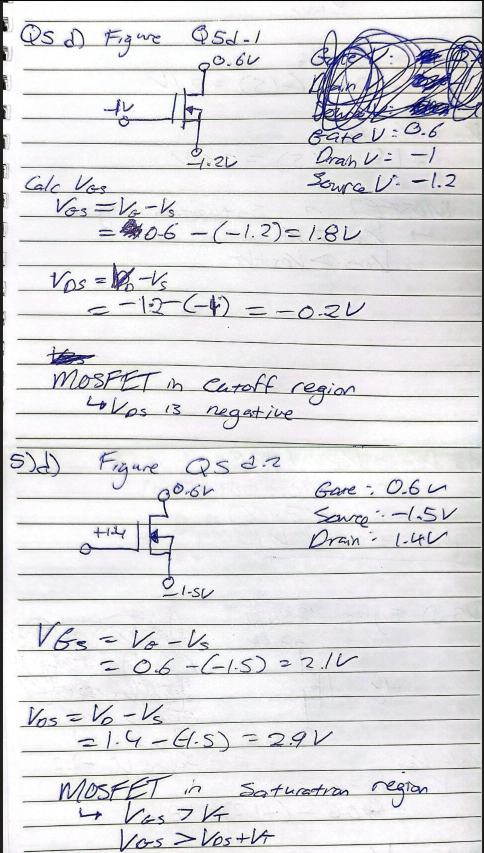 Q5 d) Figure Q5d-1
0.6V
-1V
-1.2V
Gate V:
Drain V:
Source V:
Gate V: 0.6
Drain V: -1
Source V: -1.2
Calc VGS
VGS = VG - VS
= 0.6 - (-1.2) = 1.8V
VDS = VD - VS
= -1.2 - (-1) = -0.2V
MOSFET in Cutoff region
↳ VDS is negative
5)d) Figure Q5 d.2
0.6V
+1.4
-1.5V
Gate: 0.6V
Source: -1.5V
Drain: 1.4V
VGS = VG - VS
= 0.6 - (-1.5) = 2.1V
VDS = VD - VS
= 1.4 - (-1.5) = 2.9V
MOSFET in Saturation region
↳ VGS > VT
VGS > VDS + VT